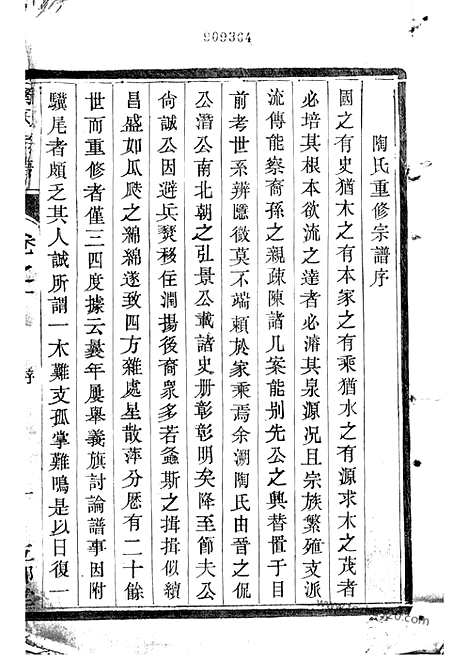 909364
陶氏重修宗譜序
國之有史猶木之有本家之有乘猶水之有源求木之茂者
必培其根本欲流之達者必濬其泉源况且宗族繁殖支派
流傳能察裔孫之親疎陳諸几案能別先公之興替置于目
前考世系辨隱微莫不端賴於家乘焉余溯陶氏由晉之侃
公潛公南北朝之弘景公載諸史册彰彰明矣降至節夫公
尙誠公因避兵燹移住潤揚後裔衆多若螽斯之揖揖似續
昌盛如瓜瓞之綿綿遂致四方雜處星散萍分歷有二十餘
世而重修者僅三四度據云曩年屢舉義旗討論譜事因附
驥尾者頗乏其人誠所謂一木難支孤掌難鳴是以日復一
卷之一
序
一